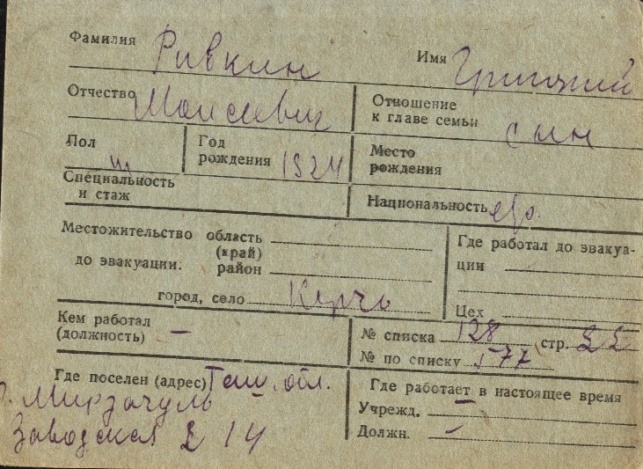 Фамилия Ривкин Имя Григорий
Отчество Моисеевич Отношение к главе семьи сын
Пол м Год рождения 1924 Место рождения
Специальность и стаж Национальность евр.
Местожительство область (край)
до эвакуации: район
город, село Керчь
Где работал до эвакуации
Цех
Кем работал (должность) —
№ списка 128 стр. 25
№ по списку 577
Где поселен (адрес) Таш. обл.
г. Мирзачуль
Заводская 2 14
Где работает в настоящее время
Учрежд. —
Должн. —